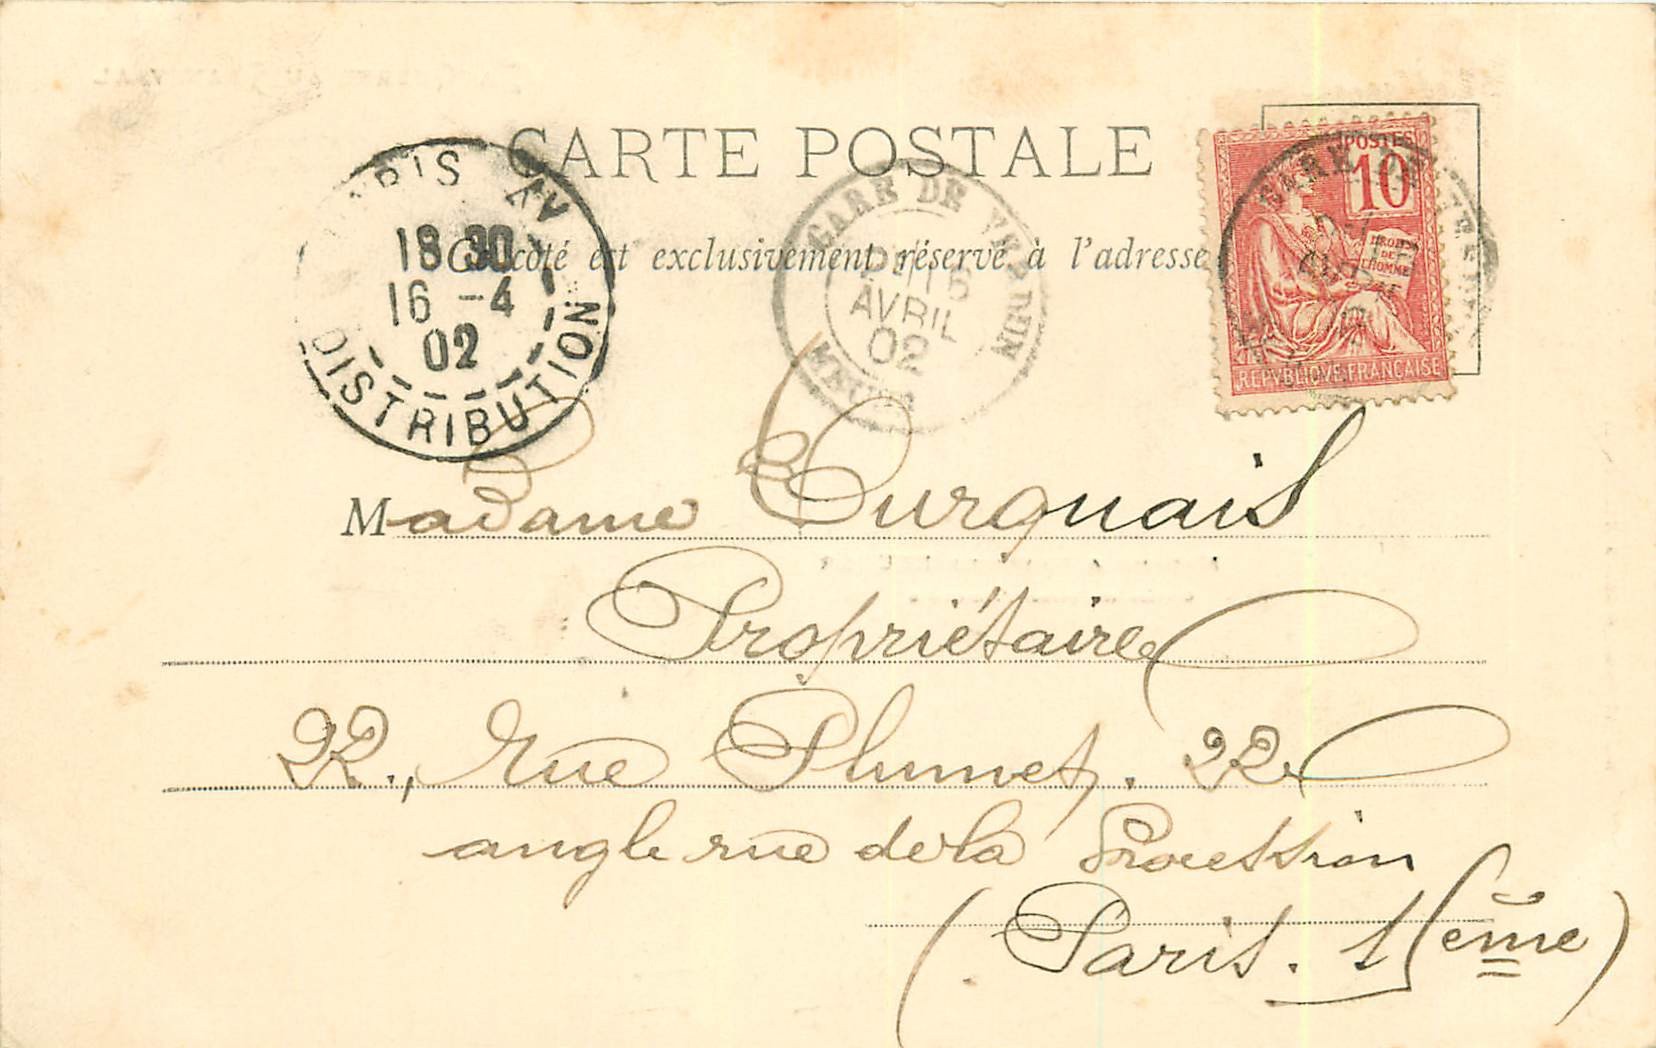 CARTE POSTALE
Ce côté est exclusivement réservé à l'adresse
PARIS XV
18 30
16 - 4
02
DISTRIBUTION
GARE DE VERDUN
15
AVRIL
02
MEUSE
POSTES
10
DROITS
DE
L'HOMME
REPUBLIQUE FRANÇAISE
GARE DE VERDUN
Madame Curquais
Propriétaire
22, Rue Plumet, 22
angle rue de la Procession
(Paris. 15ème)